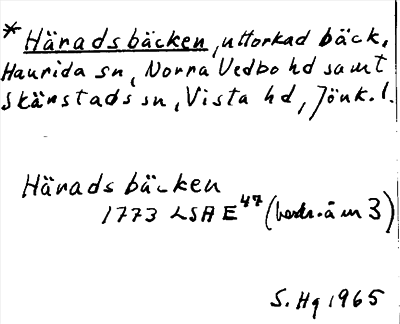 * Häradsbäcken, uttorkad bäck,
Haurida sn, Norra Vedbo hd samt
Skärstads sn, Vista hd, Jönk. l.
Häradsbäcken
1773 LSA E47 (beskr. å m 3)
S. Hg 1965